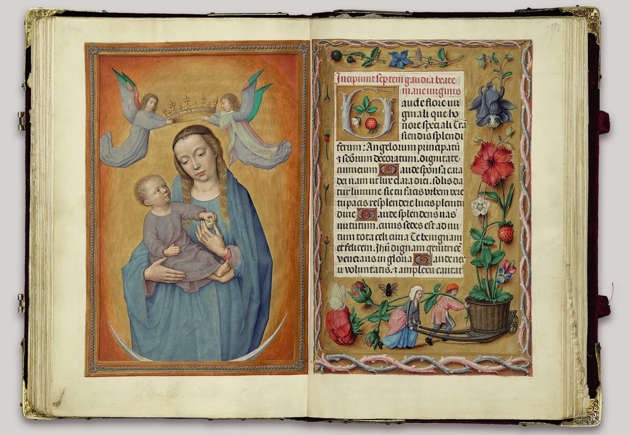 Incipiunt septem gaudia beate
marie virginis
Gaude flore vir
ginali que ho
nore speciali Trā
scendis splendi
ferum: Angelorum principatū
et sc̄orum decoratum. dignitate
numerum Gaude sponsa cara
dei nam ut lux clara diei. solis da
tur lumine sic tu facis orbem vere
tue pacis resplendere lucis plenitu
dine Gaude splendens vas
virtutum, cuius sedes est ad nu
tum tota celi curia Te benignam
et felicem. Jhū dignam genitricē
veneratur in gloria Gaude nexu
voluntatis. et amplexu caritat